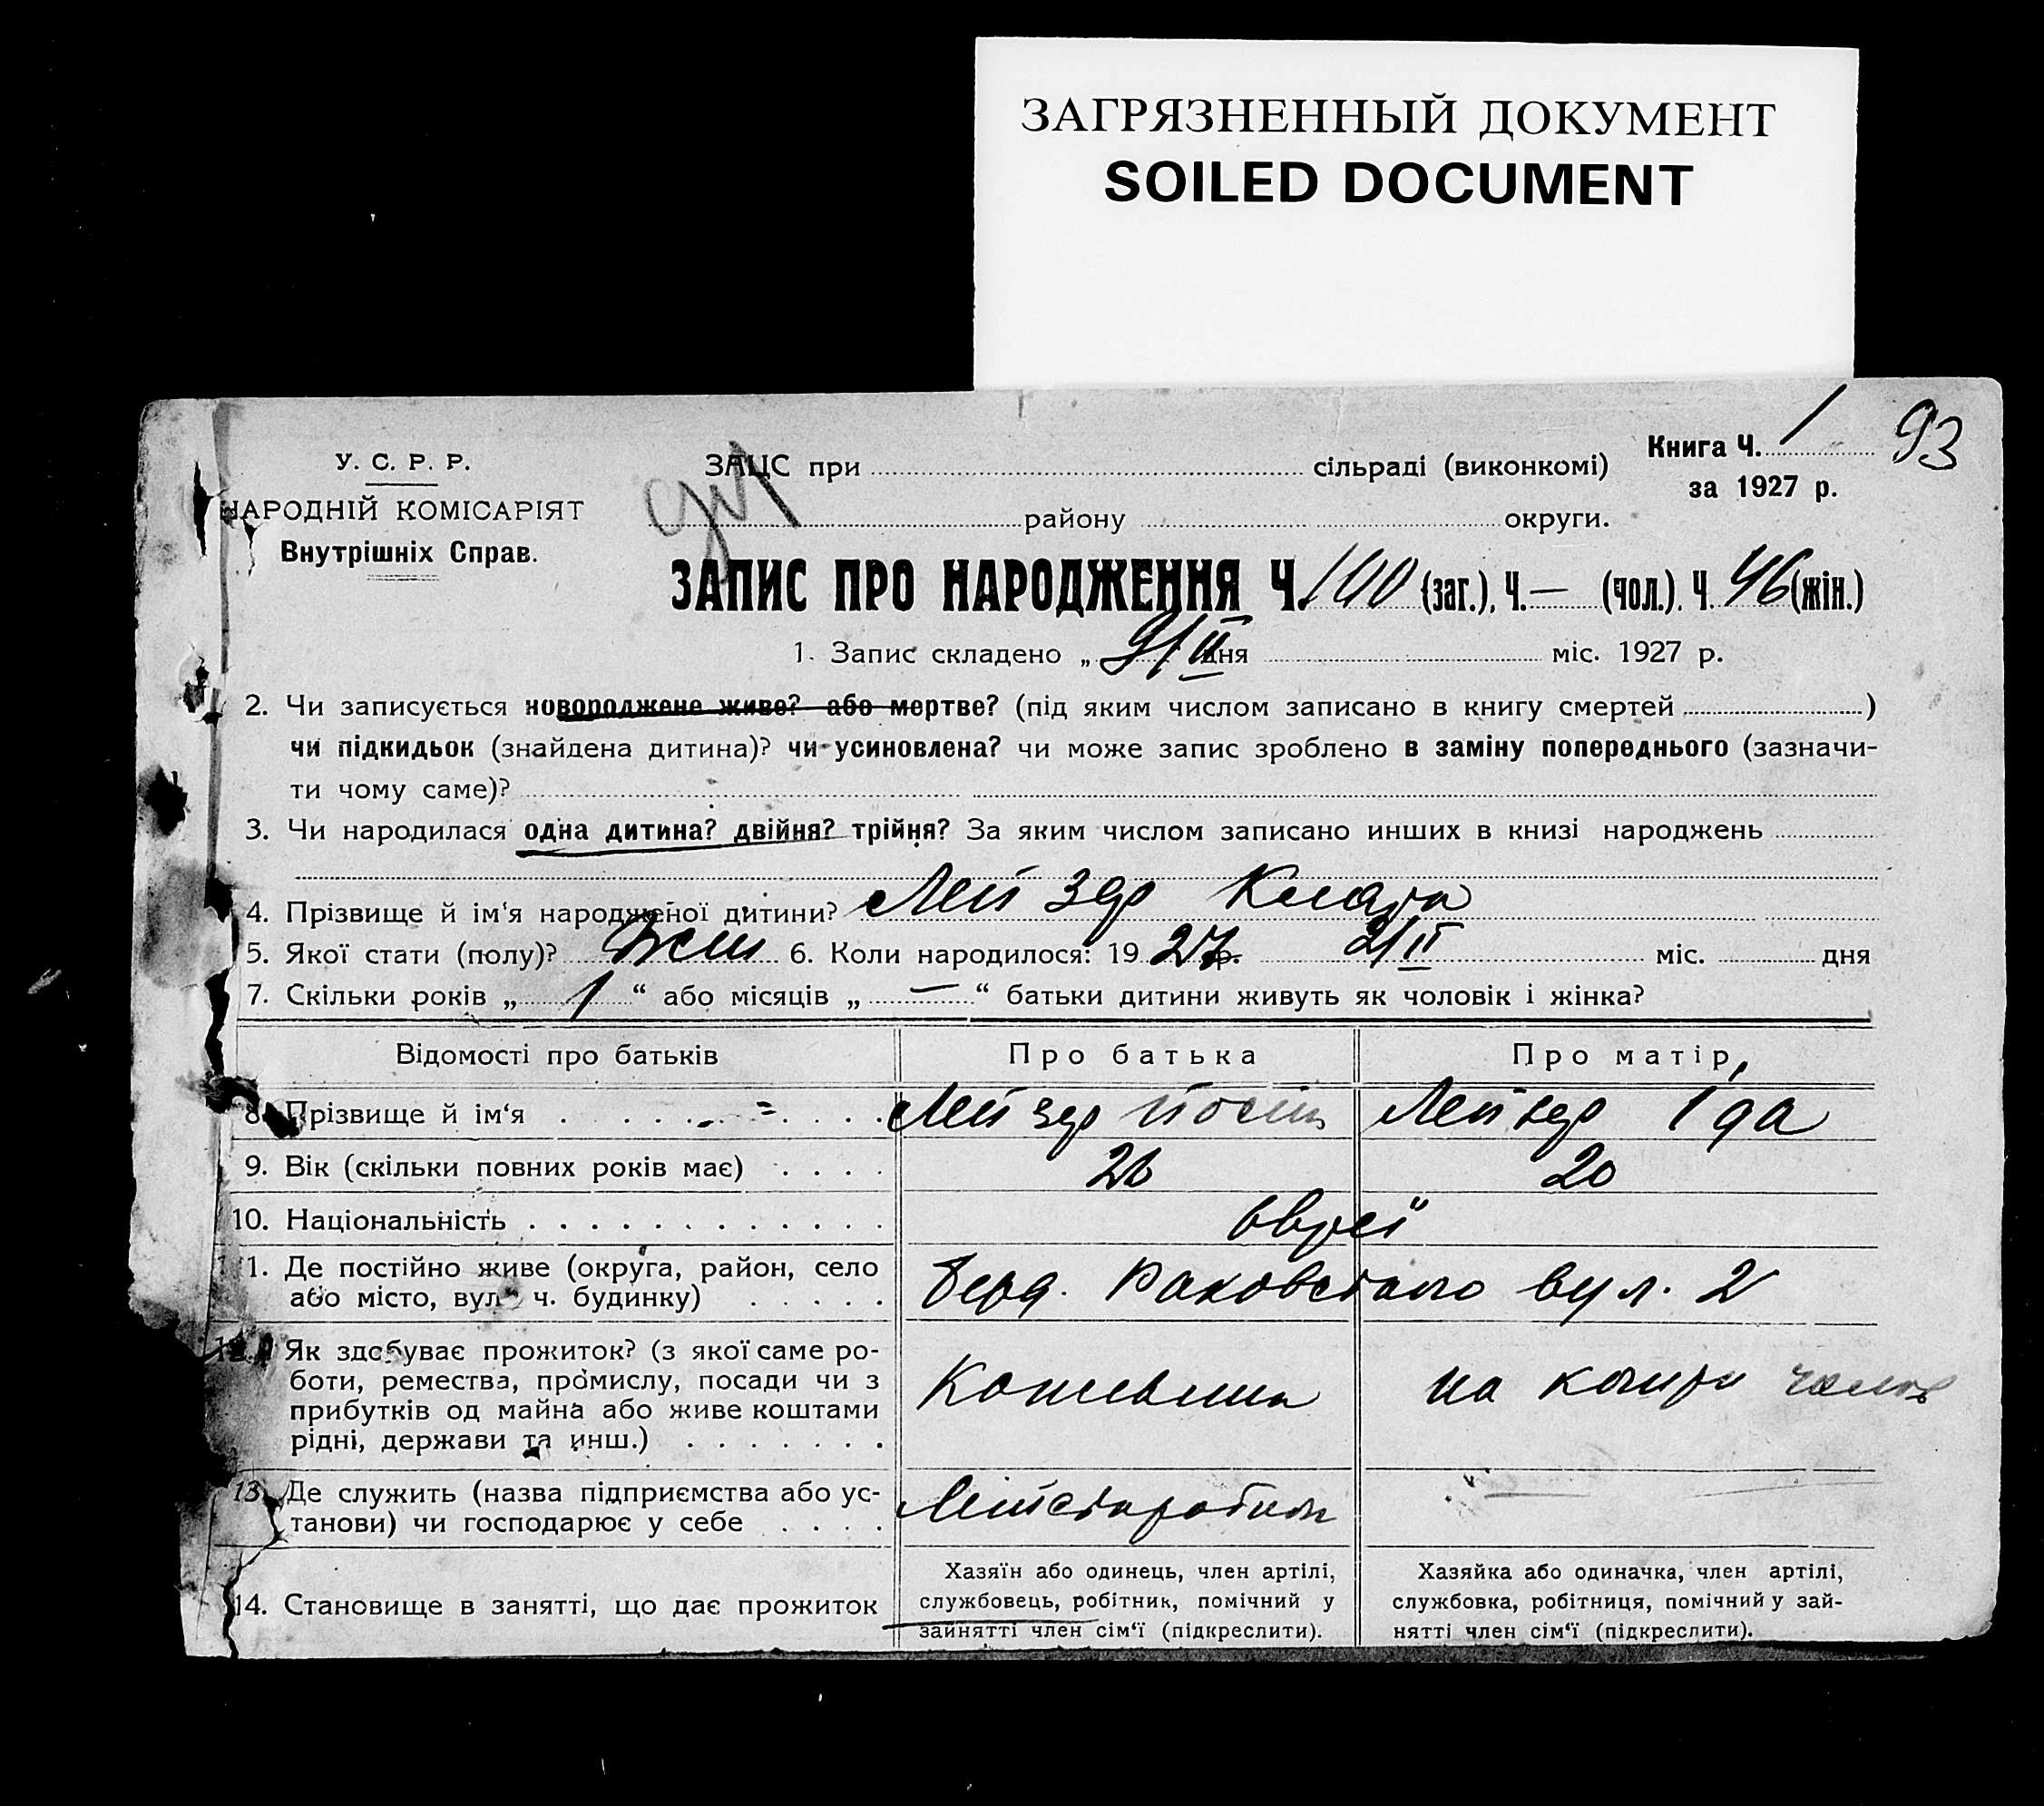 ЗАГРЯЗНЕННЫЙ ДОКУМЕНТ
SOILED DOCUMENT
93
У. С. Р. Р.
НАРОДНІЙ КОМІСАРІЯТ
Внутрішніх Справ.
ЗАЦС при сільраді (виконкомі)
району округи.
Книга Ч. 1
за 1927 р.
ЗАПИС ПРО НАРОДЖЕННЯ Ч. 100 (заг.), Ч. — (чол.). Ч. 46 (жін.)
1. Запис складено „ 9/II дня міс. 1927 р.
2. Чи записується новороджене живе? або мертве? (під яким числом записано в книгу смертей )
чи підкидьок (знайдена дитина)? чи усиновлена? чи може запис зроблено в заміну попереднього (зазначи-
ти чому саме)?
3. Чи народилася одна дитина? двійня? трійня? За яким числом записано инших в книзі народжень
4. Прізвище й ім‘я народженої дитини? Лейзер Клара
5. Якої стати (полу)? Жін 6. Коли народилося: 1927 р. 2/II міс. дня
7. Скільки років „ 1 “ або місяців „ — “ батьки дитини живуть як чоловік і жінка?
Відомості про батьків Про батька Про матір
8. Прізвище й ім‘я Лейзер Лейзер Іда
9. Вік (скільки повних років має) 26 20
10. Національність євреї
11. Де постійно живе (округа, район, село
або місто, вул. ч. будинку) Берд. Раковського вул. 2
12. Як здобуває прожиток? (з якої саме ро-
боти, ремества, промислу, посади чи з
прибутків од майна або живе коштами
рідні, держави та инш.) на
13. Де служить (назва підприємства або ус-
танови) чи господарює у себе
14. Становище в занятті, що дає прожиток
Хазяїн або одинець, член артілі,
службовець, робітник, помічний у
зайнятті член сім‘ї (підкреслити).
Хазяйка або одиначка, член артілі,
службовка, робітниця, помічний у зай-
нятті член сім‘ї (підкреслити).